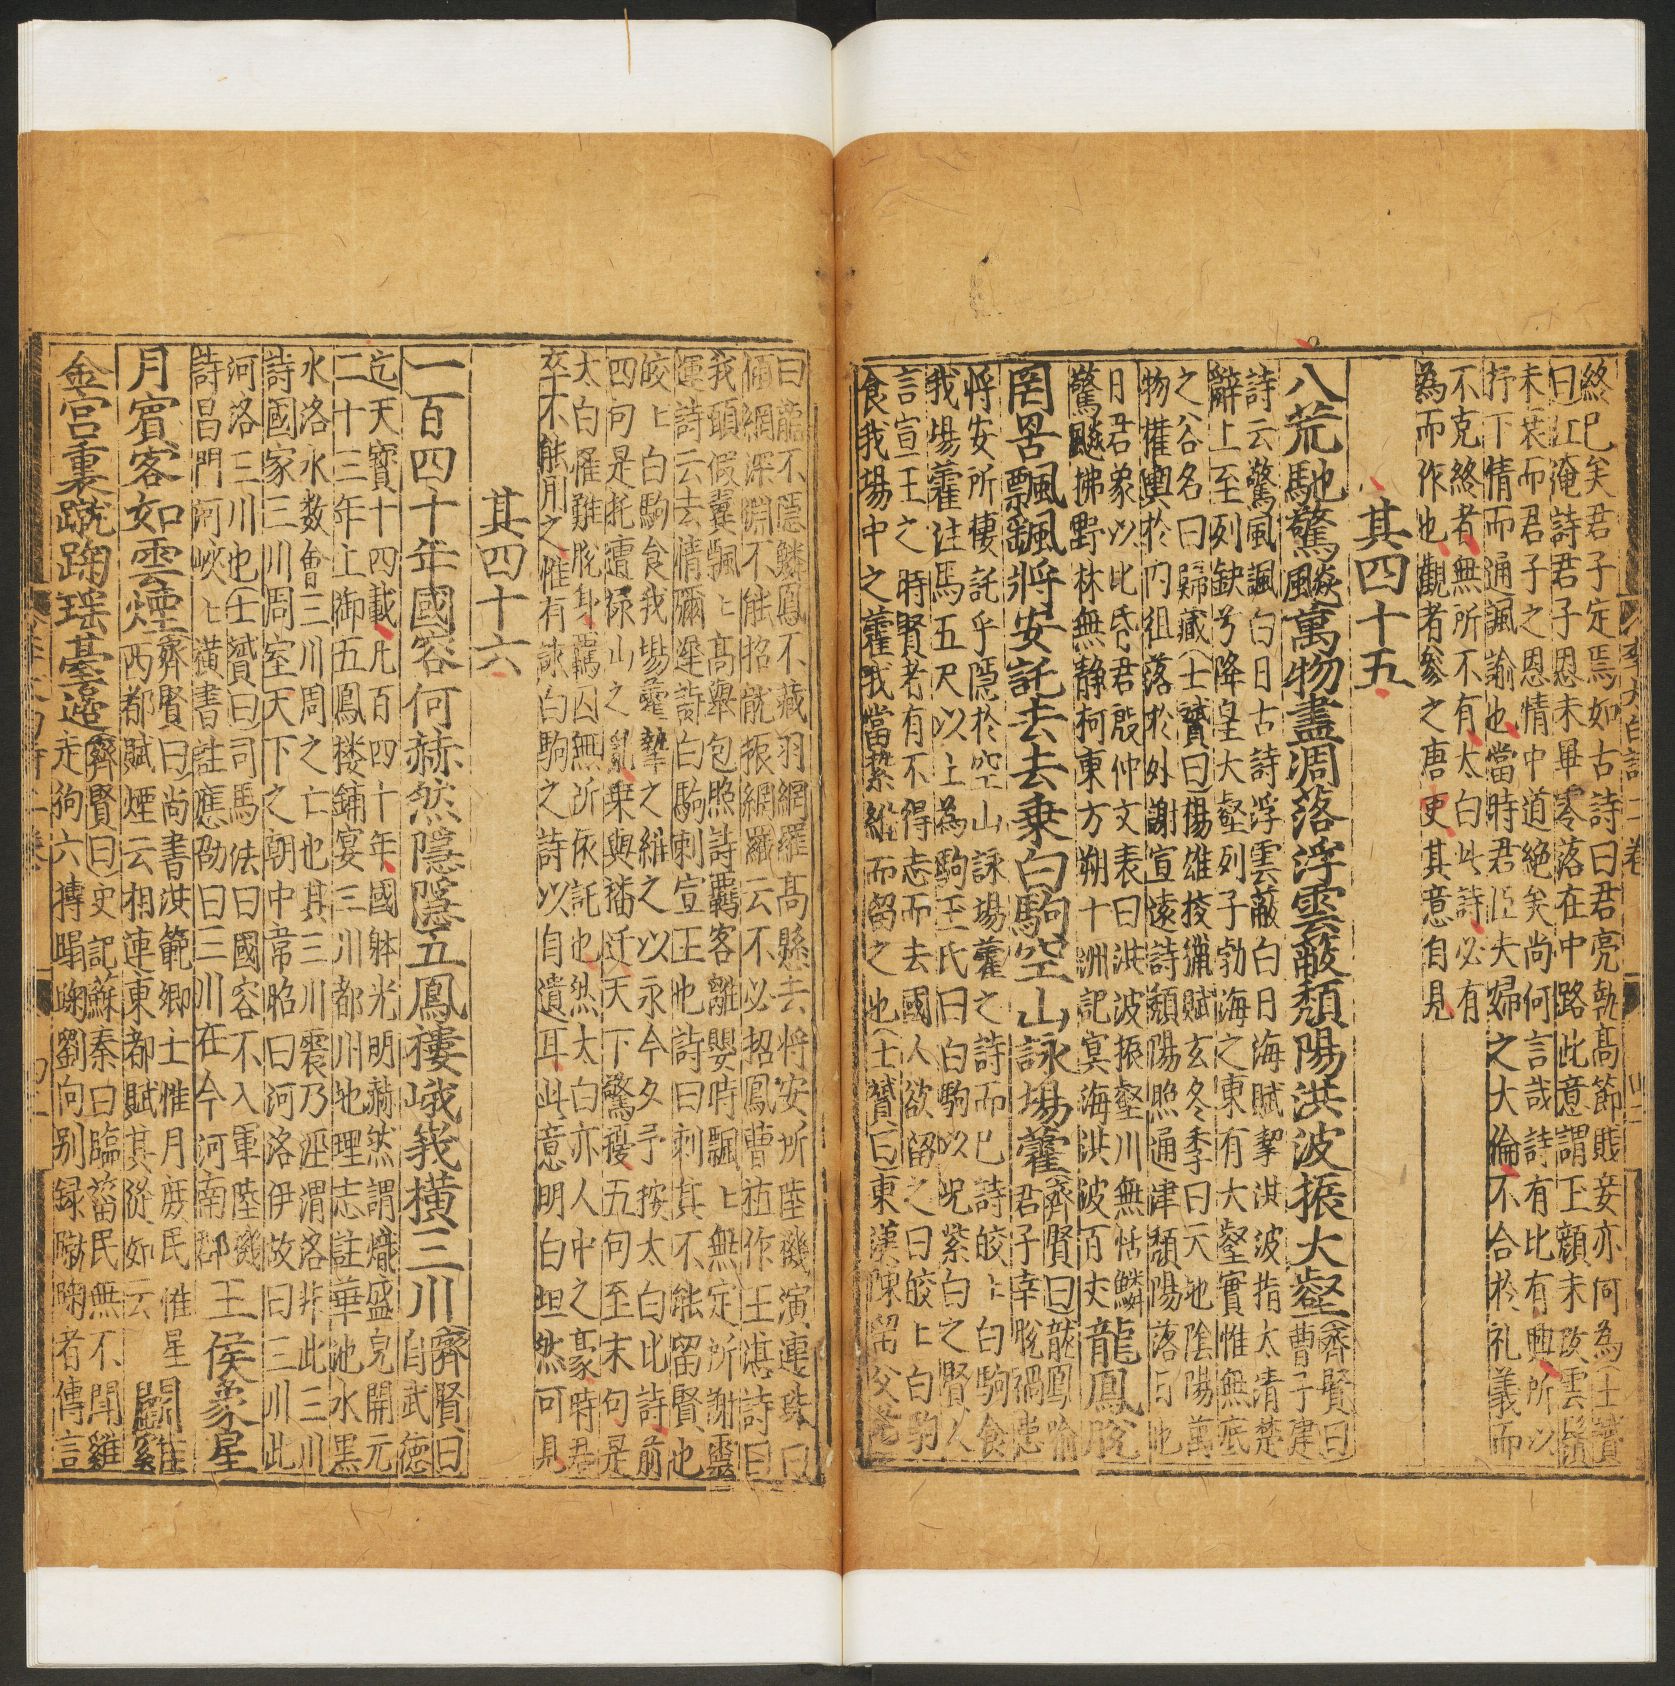 終已矣君子定焉如古詩曰君亮執髙節賎妾亦何為士贇
曰江淹詩君子恩未畢零落在中路此意謂玉顔未改雲鬂
未衰而君子之恩情中道絶矣尚何言哉詩有比有興所以
抒下情而通諷諭也當時君臣夫婦之大倫不合於礼義而
不克終者無所不有太白此詩必有
為而作也觀者參之唐史其意自見
其四十五
八荒馳驚飈萬物盡凋落浮雲蔽頽陽洪波振大壑齊賢曰曹子建
詩云驚風飄白日古詩浮雲蔽白日海賦挈洪波指太清楚
辭上至列缺兮降皇大壑列子勃海之東有大壑實惟無底
之谷名曰歸藏士贇曰揚雄挍獵賦玄冬季曰天地隂陽萬
物權輿於内徂落於外謝宣遠詩頽陽照通津頽陽落日也
日君象以比昏君殷仲文表曰洪波振壑川無恬鱗
驚飈拂野林無静柯東方朔十洲記㝠海洪波百丈龍鳳脫
罔罟飄飖將安託去去乗白駒空山詠場藿齊賢曰龍鳳喻君子幸脫禍患
将安所棲託乎隠於空山詠場藿之詩而已詩皎〻白駒食
我場藿注馬五尺以上為駒王氏曰白駒以况絜白之賢人
言宣王之時賢者有不得志而去國人欲留之曰皎〻白駒
食我場中之藿我當縶維而留之也士贇曰東漢陳留父老
曰龍不隠鱗鳳不藏羽網羅髙懸去将安所陸機演連珠曰
傾網深淵不能招龍振綱羅云不必招鳳曹植作王湛詩曰
我願假翼飄〻髙舉包照詩羈客離嬰時飄〻無定所謝靈
運詩云去情彌遲詩白駒刺宣王也詩曰刺其不能留賢也
皎〻白駒食我場藿縶之維之以永今夕予按太白此詩前
四句是托遭祿山之亂乗輿播迁天下驚擾五句至末句是
太白罹難脫身羈囚無所依託也然太白亦人中之豪時君
卒不能用之惟有詠白駒之詩以自遺耳此意明白坦然可見
其四十六
一百四十年國容何赫然隠隠五鳳樓峨峩横三川齊賢曰自武德
迄天寳十四載凡百四十年國躰光明赫然謂熾盛皃開元
二十三年上御五鳳楼鋪宴三川都川地理志註華池水黒
水洛水数㑹三川周之亡也其三川震乃涇渭洛非此三川
詩國家三川周室天下之朝中常昭曰河洛伊故曰三川此
河洛三川也士贇曰司馬法曰國容不入軍陸機
詩昌門河峽〻横書註應劭曰三川在今河南郡王侯象星
月賔客如雲煙齊賢曰尚書洪範卿士惟月庶民惟星
西都賦煙云相連東都賦其從如云鬬雞
金宫裏蹴踘瑶臺邉齊賢曰史記蘇秦曰臨菑民無不聞雞
走狗六摶蹋踘劉向别録蹴踘者傳言